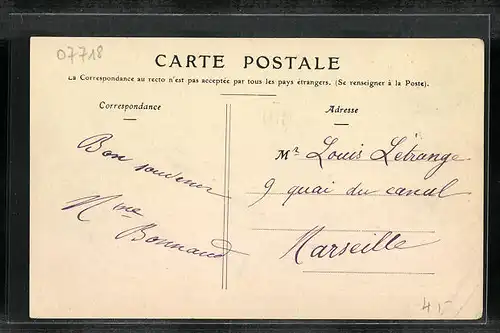 07718
CARTE POSTALE
La Correspondance au recto n'est pas acceptée par tous les pays étrangers. (Se renseigner à la Poste).
Correspondance
Adresse
Bon souvenir
Mme
Bonnaud
Mr Louis Létrange
9 quai du canal
Marseille
4,-